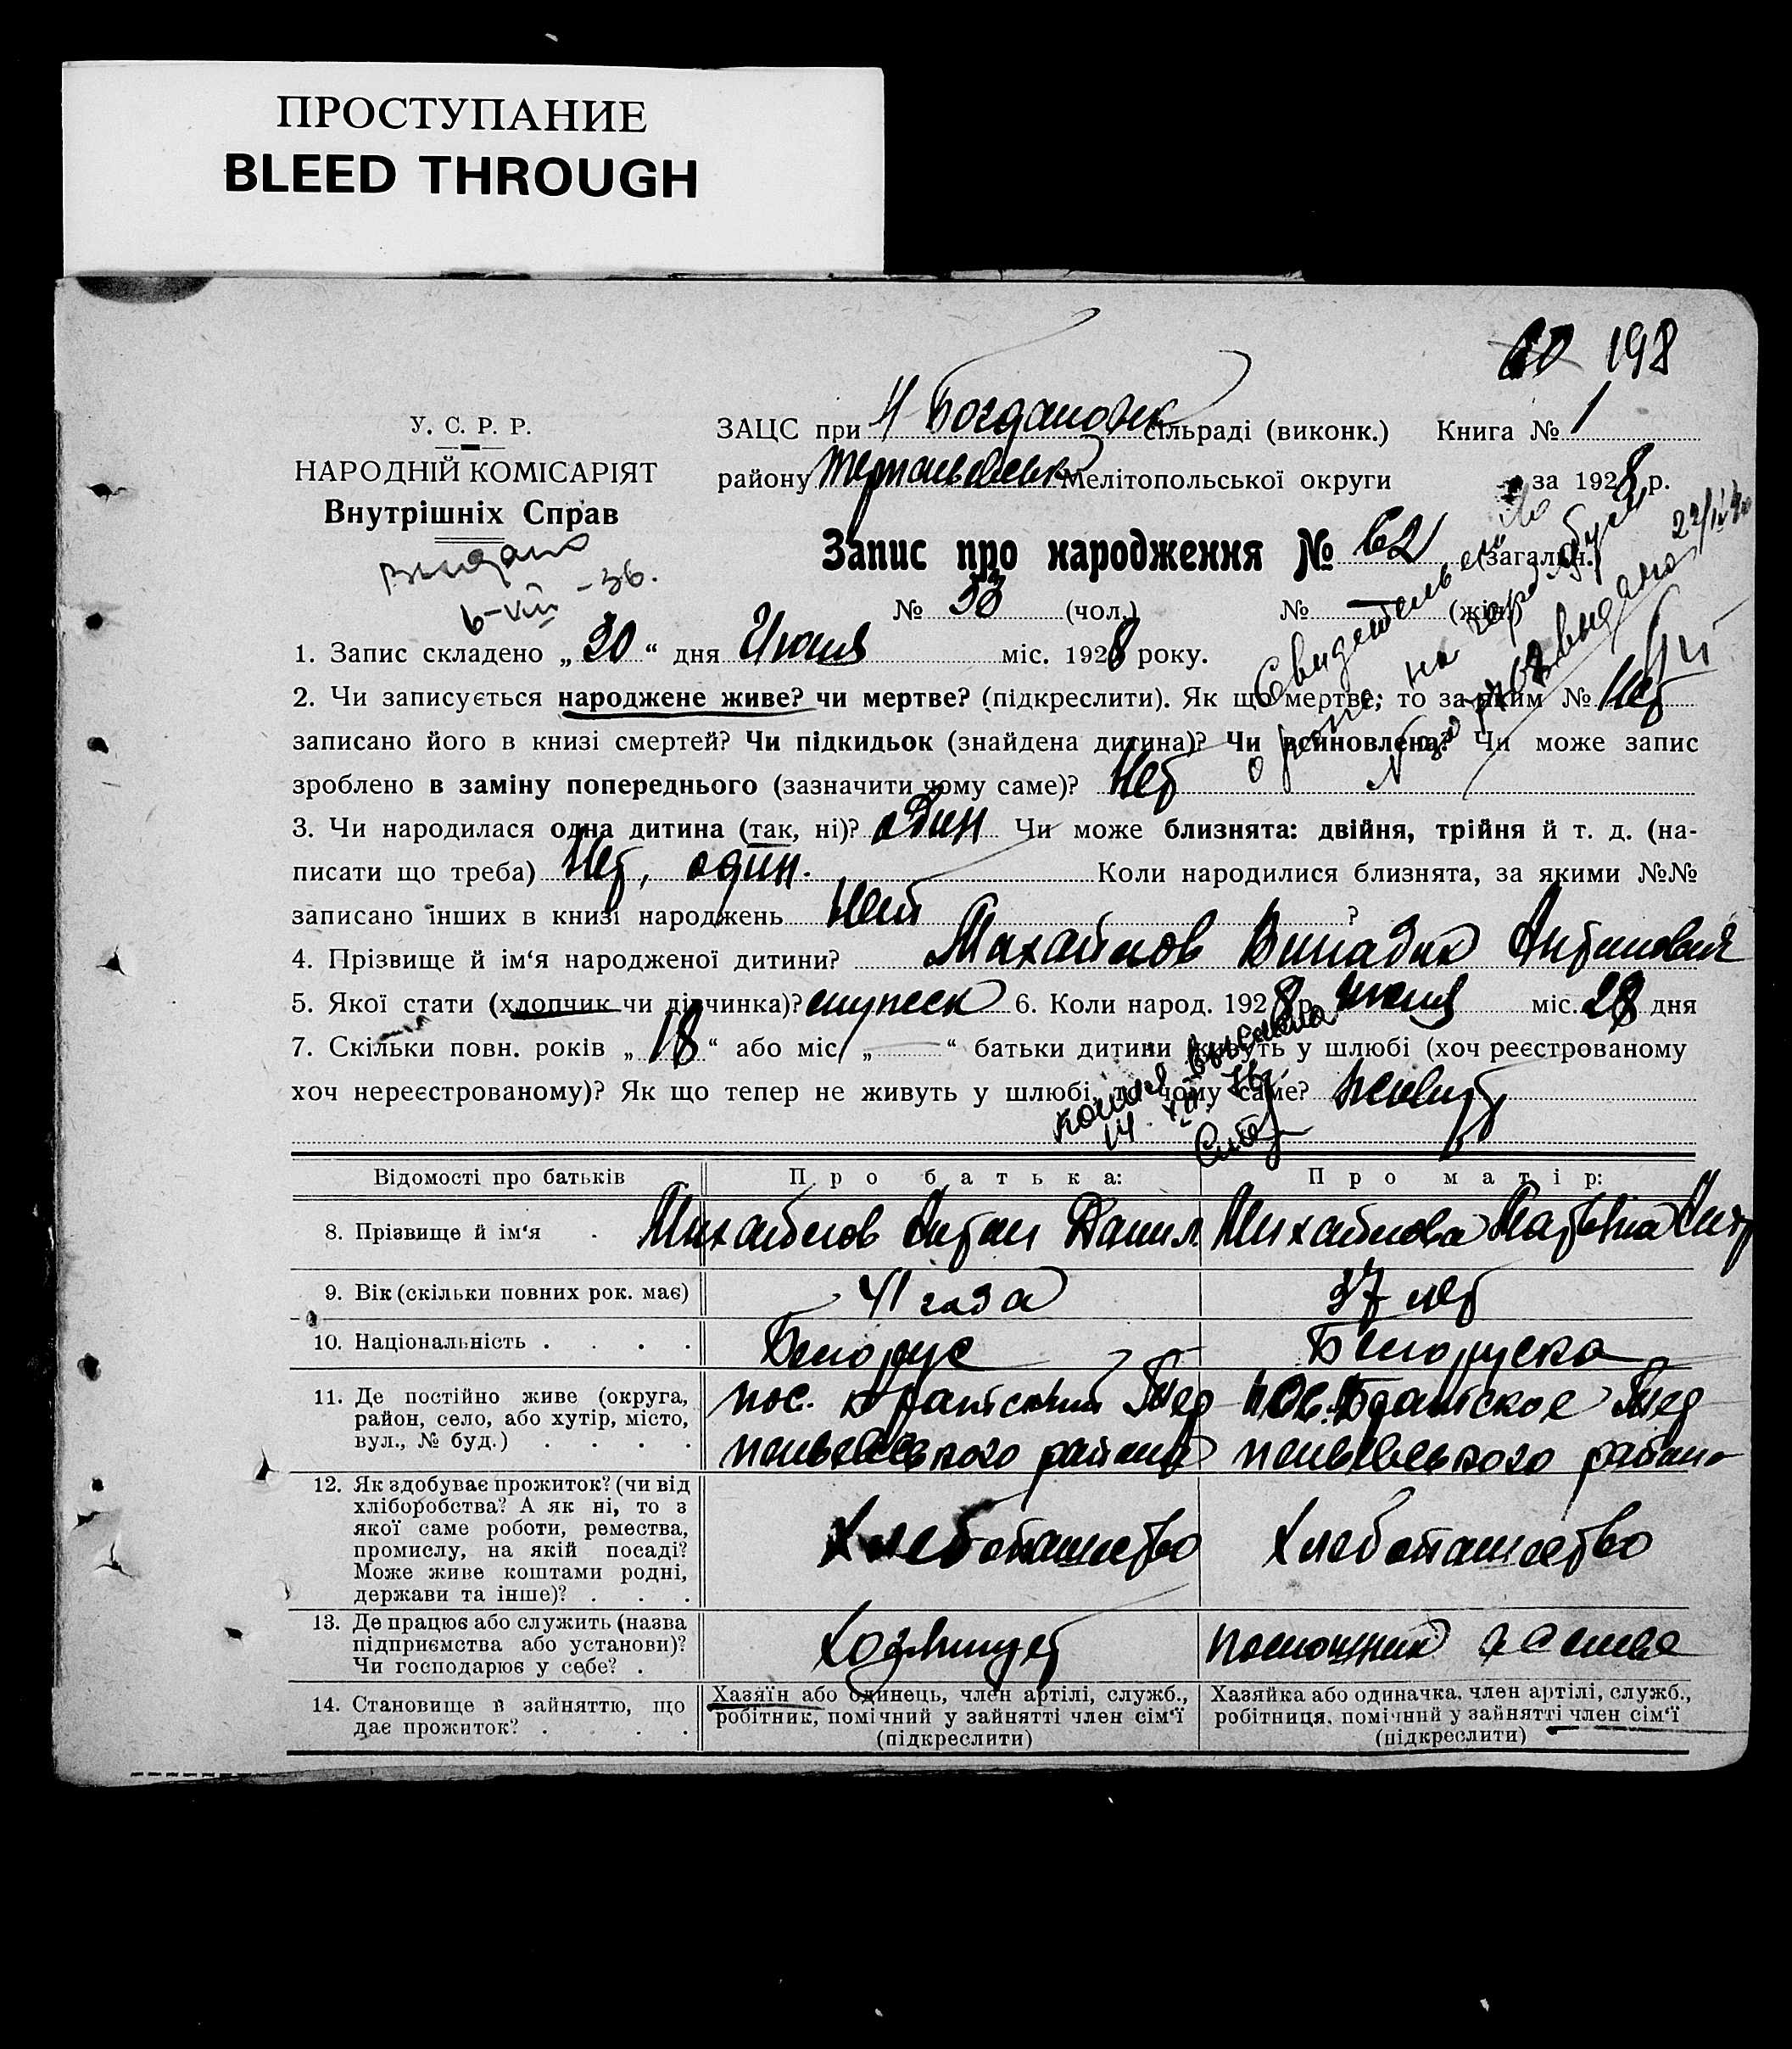 ПРОСТУПАНИЕ
BLEED THROUGH
60 198
У. С. Р. Р.
НАРОДНІЙ КОМІСАРІЯТ
Внутрішніх Справ
видано
6-VIII-36.
ЗАЦС при Н Богдановск сільраді (виконк.) Книга № 1
району Мелітопольської округи за 1928 р.
Запис про народження № 62 (загальн.)
№ 53 (чол.) № — (жін.)
Свидетельство
22/IV
1. Запис складено „30“ дня Июня міс. 1928 року.
2. Чи записується народжене живе? чи мертве? (підкреслити). Як що мертве, то за яким № Нет
записано його в книзі смертей? Чи підкидьок (знайдена дитина)? Чи всиновлена? Чи може запис
зроблено в заміну попереднього (зазначити чому саме)? Нет
3. Чи народилася одна дитина (так, ні)? один Чи може близнята: двійня, трійня й т. д. (на-
писати що треба) Нет, один. Коли народилися близнята, за якими №№
записано інших в книзі народжень Нет ?
4. Прізвище й ім‘я народженої дитини? Михайлов Антонович
5. Якої стати (хлопчик чи дівчинка)? 6. Коли народ. 1928 р. Июня міс. 28 дня
7. Скільки повн. років „18“ або міс. „—“ батьки дитини живуть у шлюбі (хоч реєстрованому
хоч нереєстрованому)? Як що тепер не живуть у шлюбі, то чому саме? живут
копия
14. XII.
Відомості про батьків Про батька: Про матір:
8. Прізвище й ім‘я . Михайлов Антон Данил Михайлова
9. Вік (скільки повних рок. має) 41 года 37 лет
10. Національність . . . . Белорус Белоруска
11. Де постійно живе (округа, район, село, або хутір, місто, вул., № буд.) . . . . пос. Братский Тер пос. Братское Тер
района района
12. Як здобуває прожиток? (чи від хліборобства? А як ні, то з якої саме роботи, ремества, промислу, на якій посаді? Може живе коштами родні, держави та інше)? . . . Хлебопашество Хлебопашество
13. Де працює або служить (назва підприємства або установи)? Чи господарює у себе? . помощник
14. Становище в зайняттю, що дає прожиток? . . . .
Хазяїн або одинець, член артілі, служб., робітник, помічний у зайнятті член сім‘ї (підкреслити)
Хазяйка або одиначка, член артілі, служб., робітниця, помічний у зайнятті член сім‘ї (підкреслити)